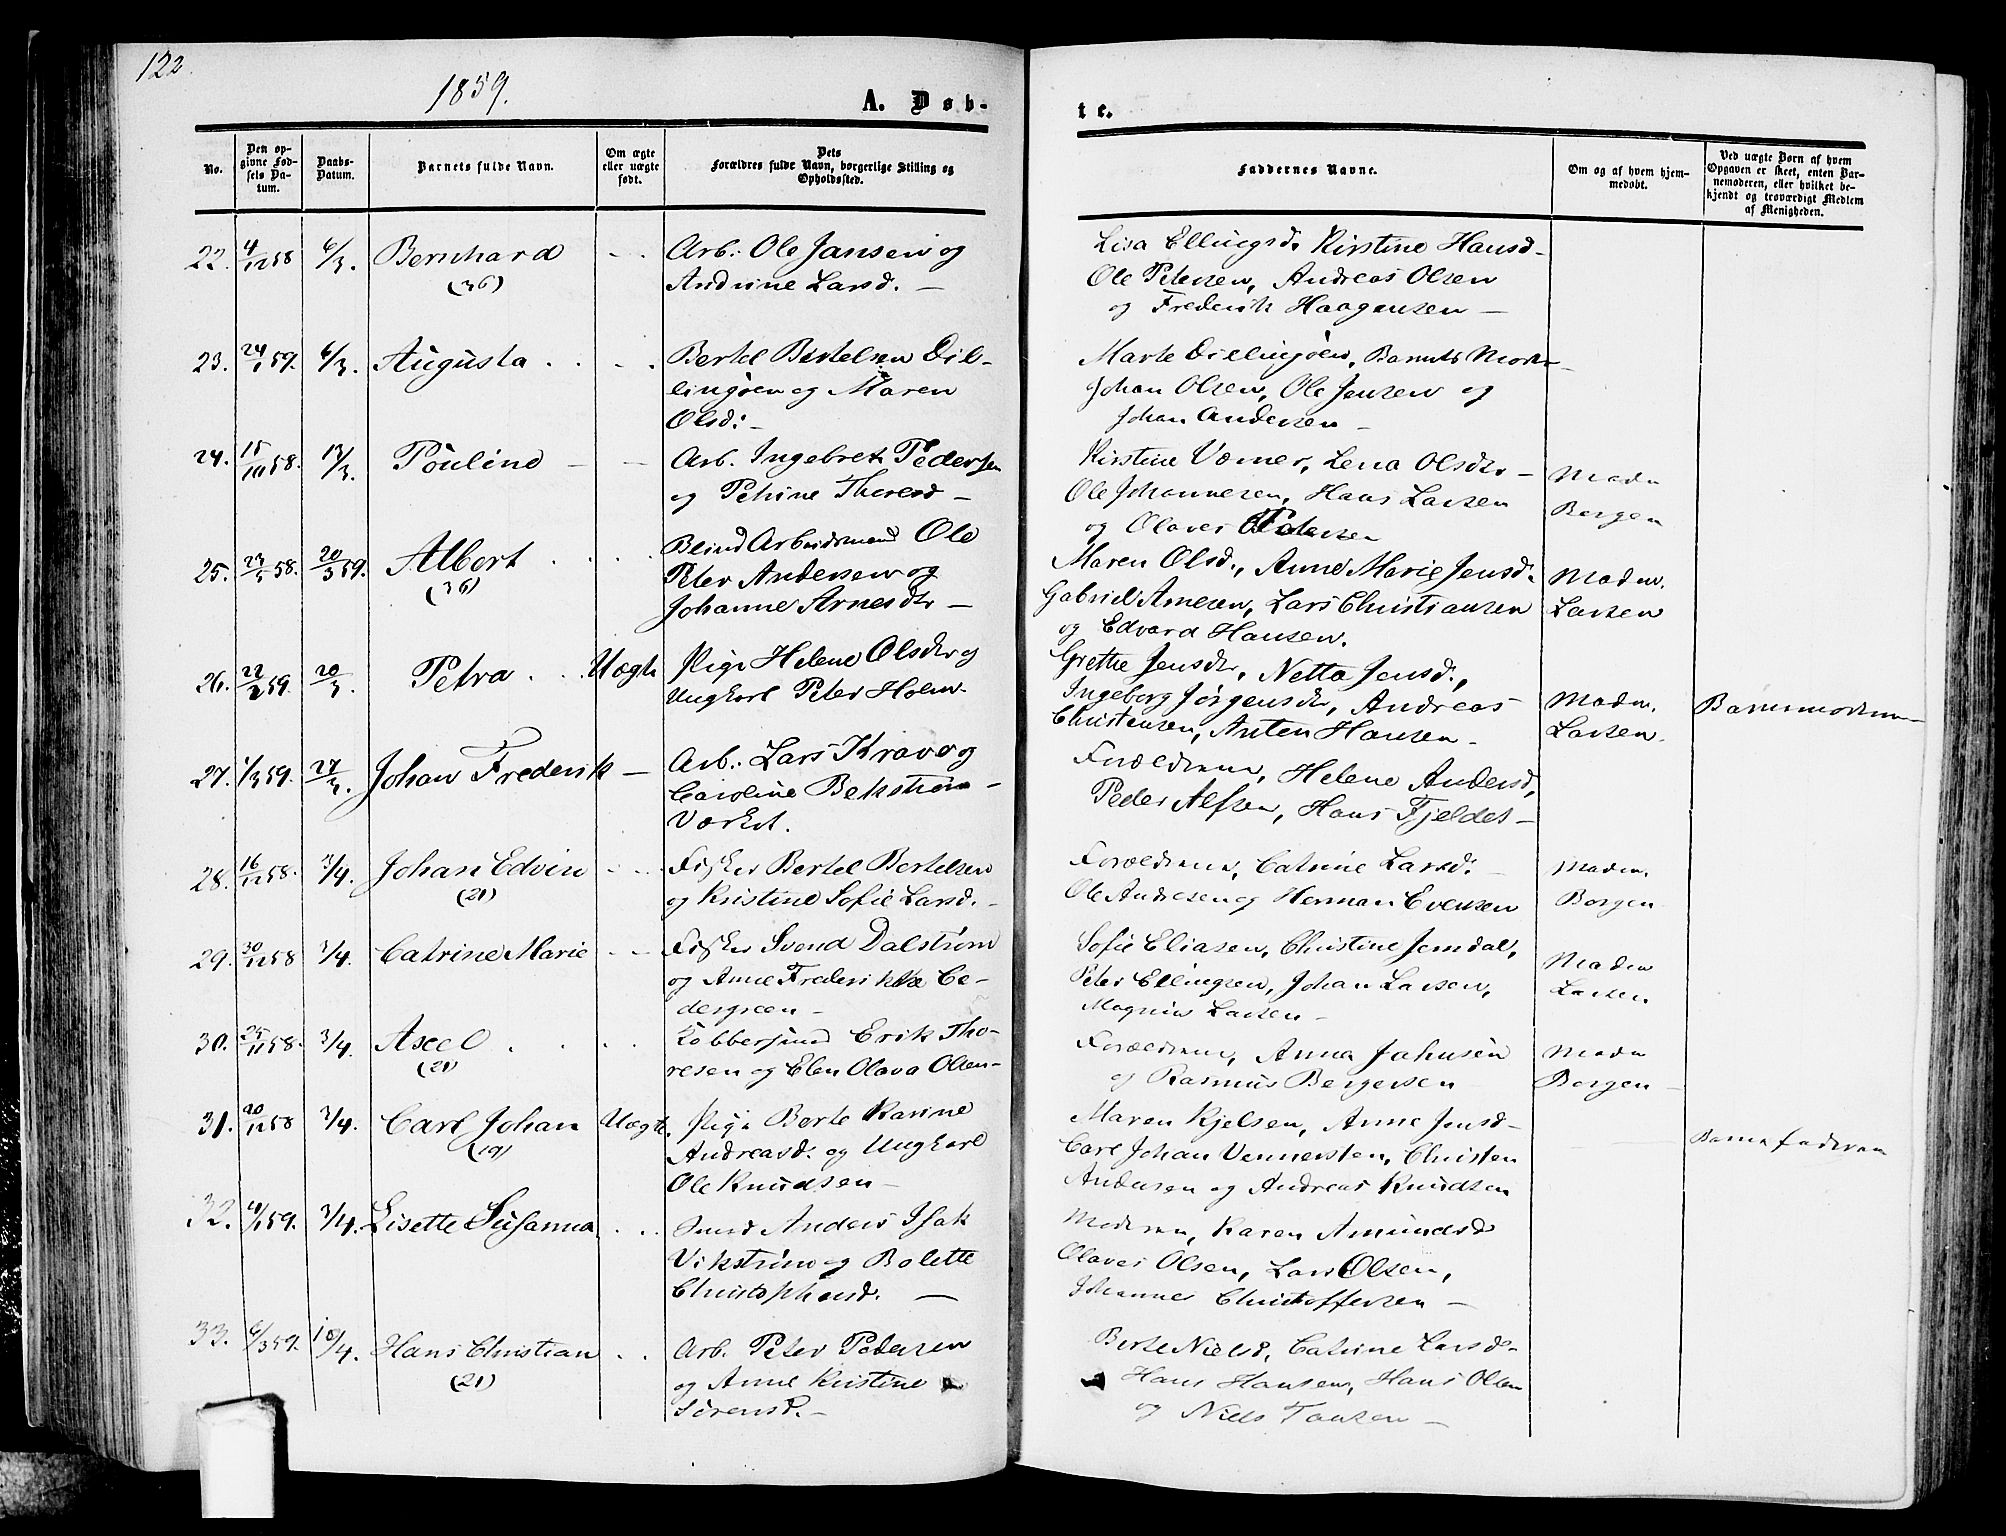 122.
1859.
A. Døb-
te.
No.
Den op-
givne Fød-
sels Da-
tum.
Daabs-
Datum.
Barnets fulde Navn.
Om ægte
eller uægte
født.
Dets
Forældres fulde Navn, borgerlige Stilling og
Opholdssted.
Faddernes Navne.
Om og af hvem hjem-
medøbt.
Ved uægte Børn af hvem
Opgaven er skeet, enten Bar-
nemoderen, eller hvilket be-
kjendt og troværdigt Medlem
af Menigheden.
22. 4/12 58 6/3. Bernhard - - Arb: Ole Jansen og
(36) Andrine Larsd. -
Lisa Ellingsd. Kirstine Hansd-
Ole Petersen, Andreas Olsen
og Frederik Haagensen -
23. 24/1 59. 6/3. Augusta . . . . Bertel Bertelsen Dil-
lingøen og Maren
Olsd: -
Marte Dillingøen, Barnets Moder
Johan Olsen, Ole Jensen og
Johan Andersen -
24. 15/10 58. 13/3. Pouline - - Arb. Ingebret Pedersen
og Petrine Thoresd -
Kirstine Værner, Lena Olsdtr -
Ole Johannesen, Hans Larsen
og Olaves Petersen
Madm
Borgen
25. 23/5 58. 20/3 59. Albert . . . . Blind Arbeidsmand Ole
(36) Peter Andersen og
Johanne Arnesdtr -
Maren Olsd., Anne Marie Jensd.
Gabriel Arnesen, Lars Christiansen
og Edvard Hansen.
Madm.
Larsen
26. 22/2 59. 20/3. Petra . . . Uægte Pige Helene Olsdtr og
Ungkarl Peter Holm.
Grethe Jensdtr, Netta Jensd.,
Ingeborg Jørgensdtr, Andreas
Christensen, Anten Hansen -
Madm.
Larsen.
Barnemoderen
27. 1/3 59. 27/3. Johan Frederik - Arb: Lars Krave og
Caroline Bekstrøm -
Værket.
Forældrene, Helene Andersd,
Peder Alfsen, Hans Fjeldet -
28. 16/12 58. 3/4. Johan Edvin . . . Fisker Bertel Bertelsen
(21) og Kristine Sofie Larsd. -
Forældrene, Catrine Larsd: -
Ole Andresen og Herman Evensen
Madm.
Borgen -
29. 30/11 58 3/4. Catrine Marie - - Fisker Svend Dalstrøm
og Anne Frederikke Ce-
dergreen -
Sofie Eliasen, Christine Jemdal,
Peter Ellingsen, Johan Larsen,
Magnus Larsen -
Madm
Larsen
30. 25/11 58. 3/4. Axel . . . . Kobbersmed Erik Tho-
(21) resen og Elen Olava Olsen -
Forældrene, Anna Johnsen
og Rasmus Bergersen
Madm
Borgen -
31. 20/12 58 3/4. Carl Johan Uægte. Pige Berte Karine
(19) Andreasd. og Ungkarl
Ole Knudsen -
Maren Kjelsen, Anne Jensd -
Carl Johan Vennersten, Christen
Andersen og Andreas Knudsen
Barnefaderen
32. 4/1 59. 3/4. Lisette Susanna . . . Smed Anders Isak
Vikstrøm og Bolette
Christophersd. -
Moderen, Karen Amundsd
Olaves Olsen, Lars Olsen,
Johannes Christoffersen -
33. 6/3 59. 10/4. Hans Christian . . Arb. Peter Pedersen
(21) og Anne Kristine
Sørensd. -
Berte Nielsd, Catrine Larsd -
Hans Hansen, Hans Olsen
og Niels Tansen -